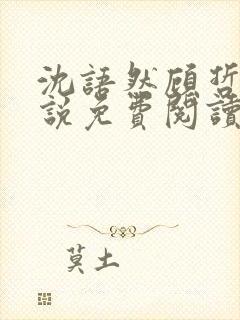 沈語然顧哲
說免費閱讀
莫土